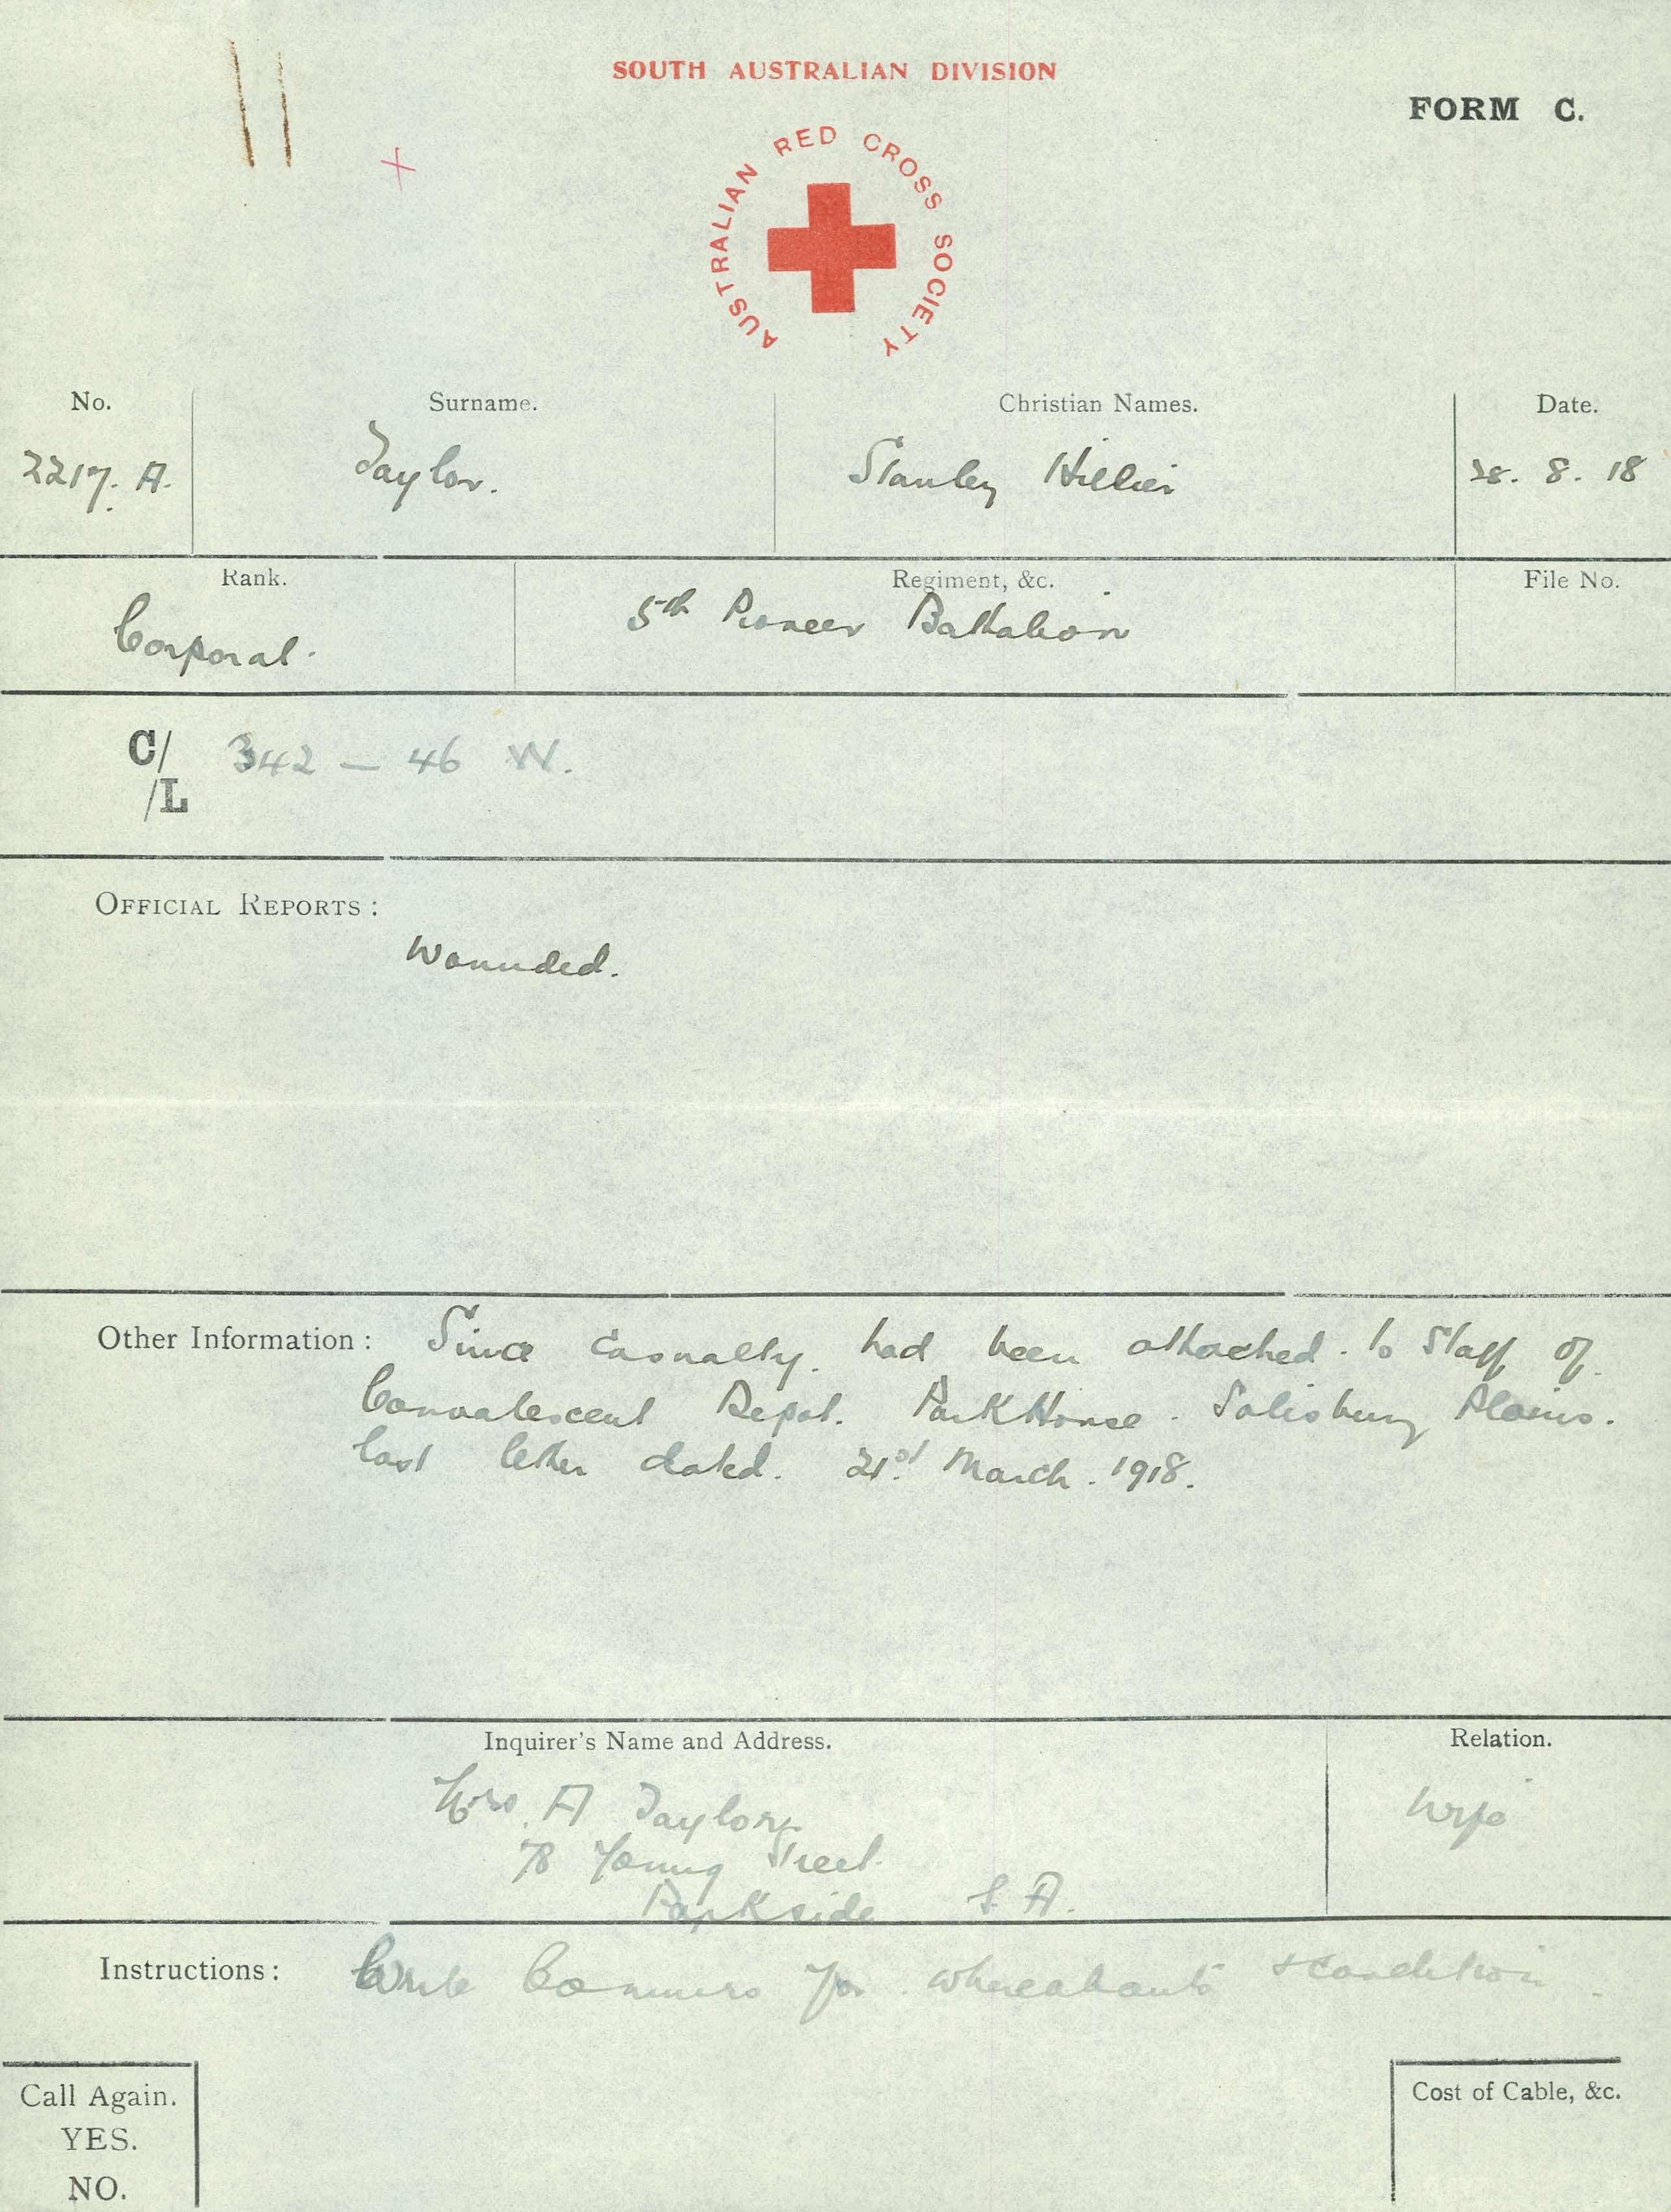 SOUTH AUSTRALIAN DIVISION
FORM C.
AUSTRALIAN RED CROSS SOCIETY
No.
Surname.
Christian Names.
Date.
2217. A.
Taylor.
Stanley Hillier
28. 8. 18
Rank.
Regiment, &c.
File No.
Corporal.
5th Pioneer Battalion
C/ 342 — 46 W.
/L
OFFICIAL REPORTS:
Wounded.
Other Information: Since Casualty. had been attached. to Staff of.
Convalescent Depot. Park House. Salisbury Plains.
last letter dated. 21st March. 1918.
Inquirer's Name and Address.
Relation.
Mrs. A Taylor
78 Young Street.
Parkside S. A.
Wife
Instructions: Write Commrs for whereabouts & condition.
Call Again.
YES.
NO.
Cost of Cable, &c.